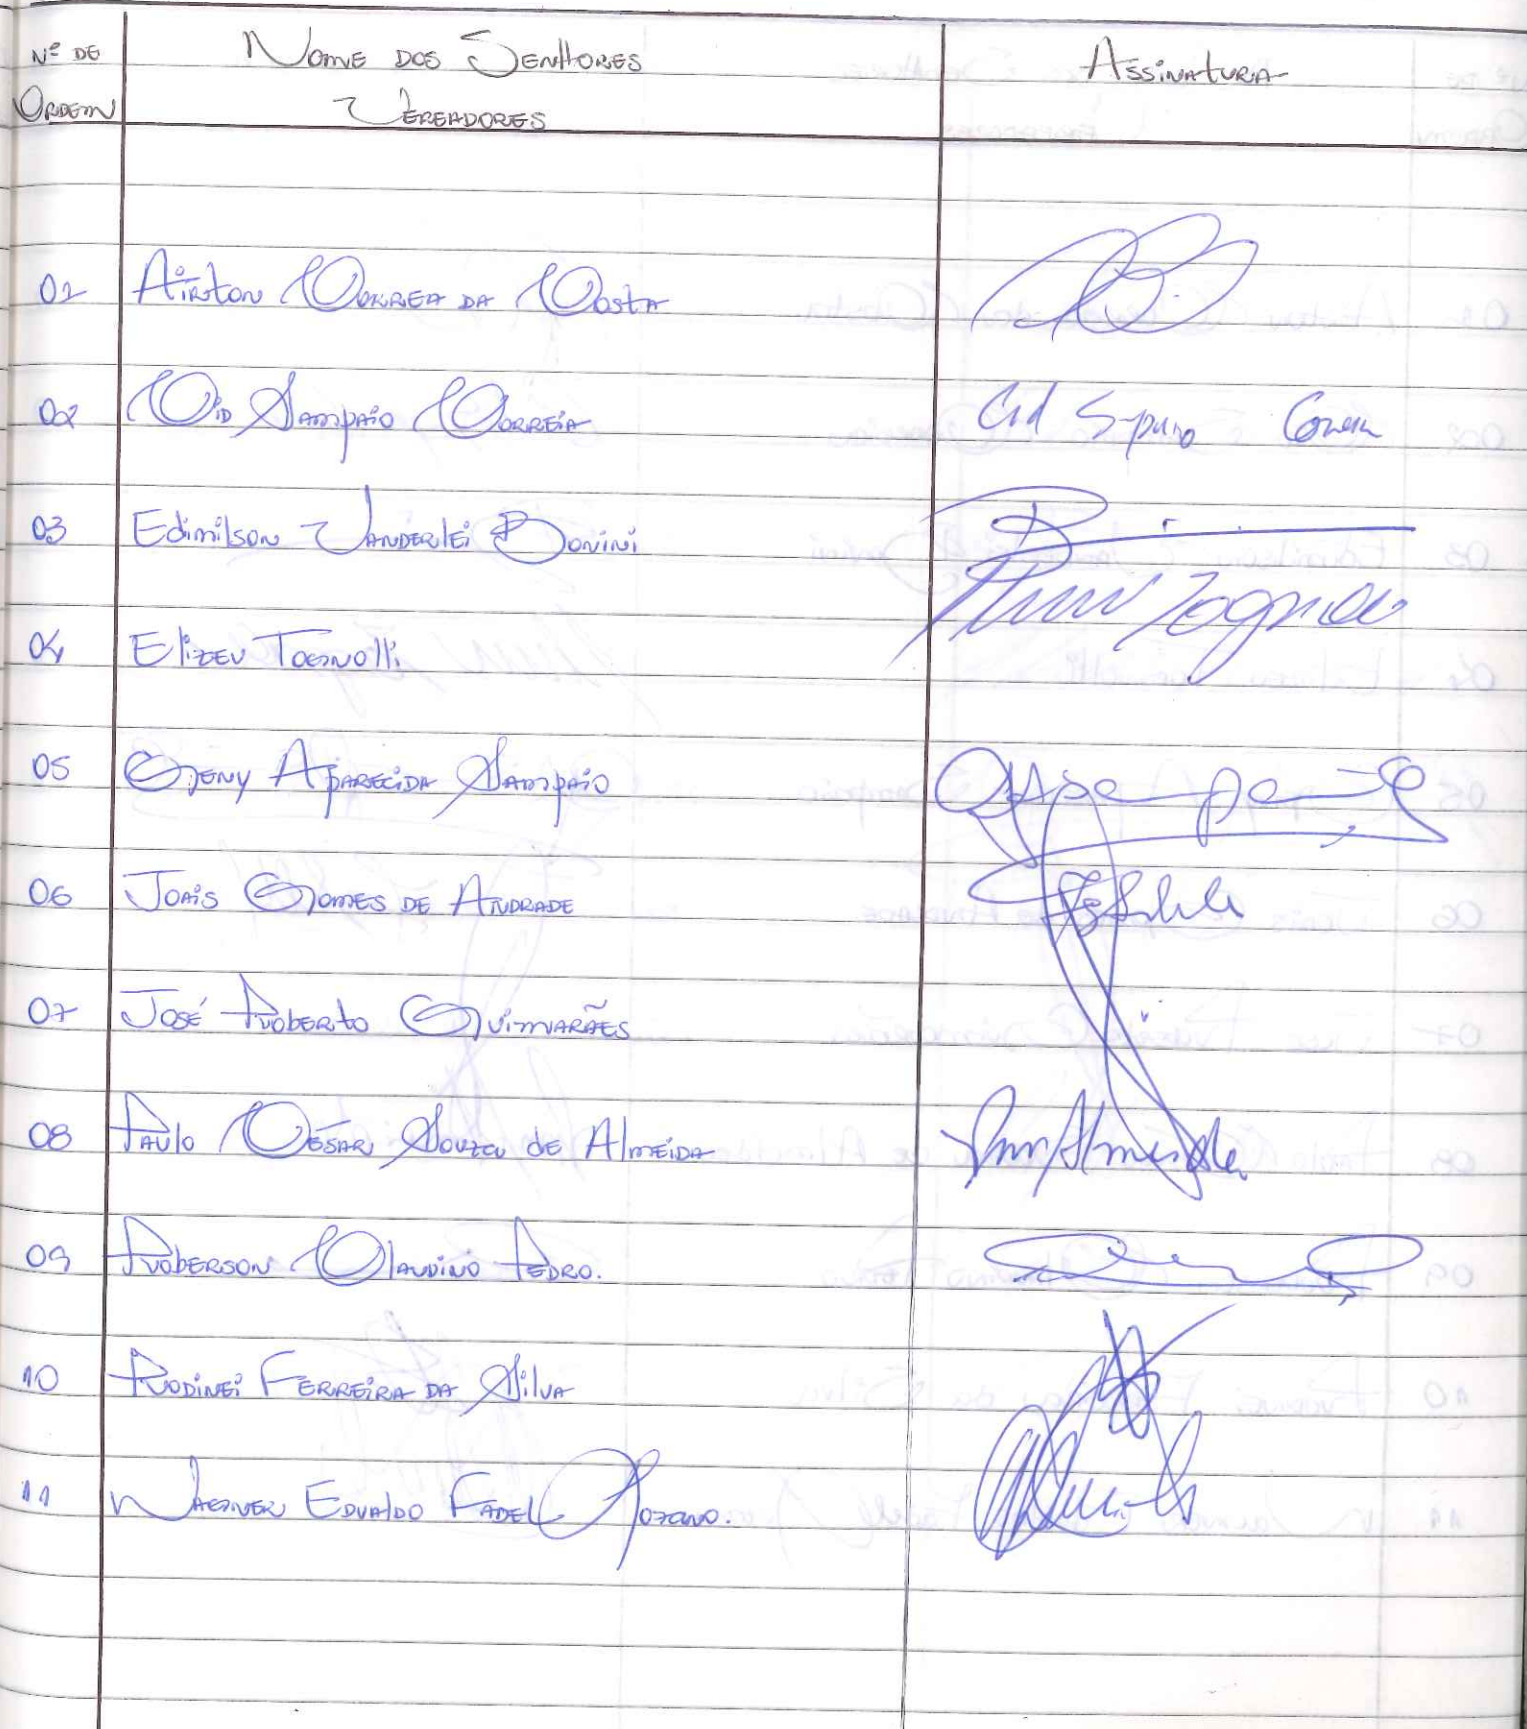 Nº DE
ORDEM
NOME DOS SENHORES
VEREADORES
ASSINATURA
01 AIRTON CORREA DA COSTA
02 CID SAMPAIO CORREIA
Cid Sampaio Correia
03 EDIMILSON VANDERLEI BONINI
04 ELIZEU TOGNOLLI
05 GENY APARECIDA SAMPAIO
06 JOAIS GOMES DE ANDRADE
07 JOSÉ ROBERTO GUIMARÃES
08 PAULO CÉSAR SOUZA DE ALMEIDA
09 ROBERSON CLAUDINO PEDRO.
10 RODINEI FERREIRA DA SILVA
11 WAGNER EDUALDO FADEL LOZANO.